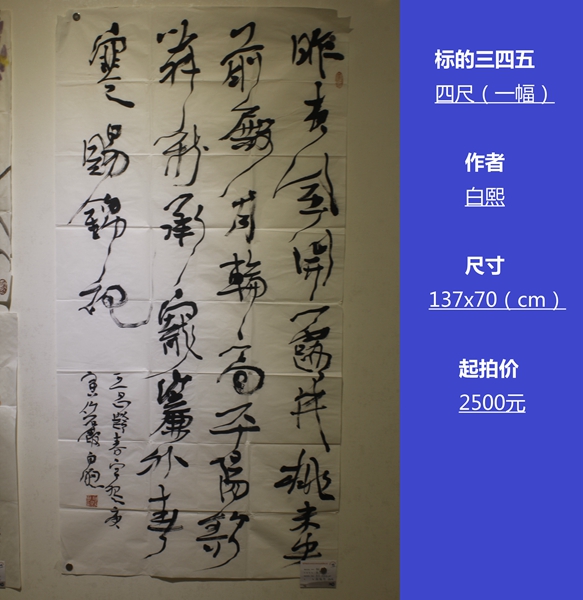 昨夜風開露井桃未央
前殿月輪高平陽歌
舞新承寵簾外春
寒賜錦袍
王昌齡春宮怨庚
寅 白熙
标的三四五
四尺（一幅）
作者
白熙
尺寸
137x70（cm）
起拍价
2500元